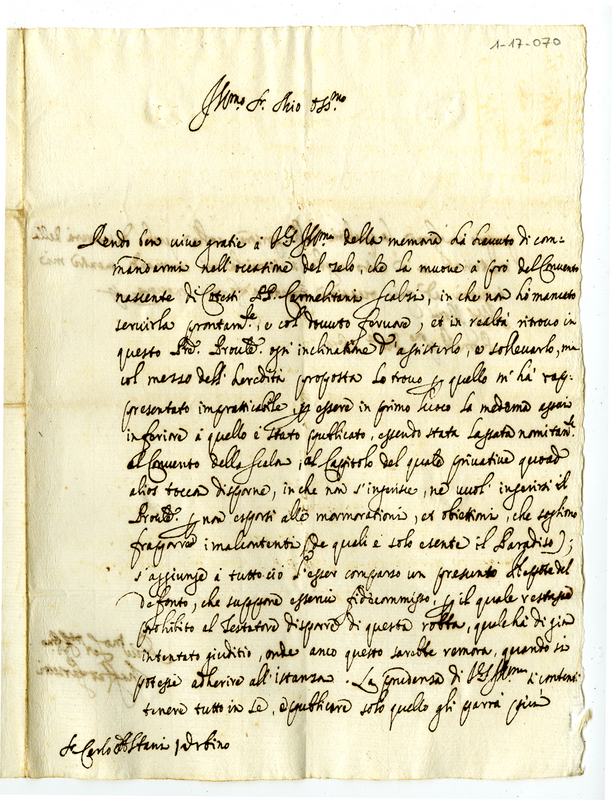 1-17-070
Ill.mo S.r Mio Oss.mo
Rendo ben vive gratie à V.S. Ill.ma della memoria hà havuto di com=
mandarmi nell'occasione del zelo, che la muove à prò del Convento
nascente di Cotesti PP. Carmelitani Scalzi, in che non hò mancato
servirla prontam.te, e col dovuto fervore, et in realtà ritrovo in
questo P.re Prov.le ogni inclinatione d'assisterlo, e sollevarlo, ma
col mezzo dell'heredità proposta lo trovo p quello m'hà rap=
presentato impratticabile, p essere in primo luoco la medema assai
inferiore à quello è stato publicato, essendo stata lassata nomitam.te
al Convento della Scala, al Capitolo del quale privative quoad
alios tocca disporne, in che non s'ingerisce, nè vuol' ingerirsi il
Prov.le p non esporsi alle mormorationi, et obiettioni, che sogliono
fraporre i malcontenti (de quali è solo esente il Paradiso);
s'aggiunge à tutto ciò l'esser comparso un presunto Nepote del
Defonto, che suppone esservi fidecommisso, p il quale restasse
prohibito al Testatore disporre di questa robba, qual hà di già
intentato giuditio, onde anco questo sarebbe remora, quando si
potesse adherire all'istanza. La prudenza di V.S. Ill.ma si contenti
tenere tutto in se, e publicare solo quello gli parrà più
S.r Carlo Albani Urbino